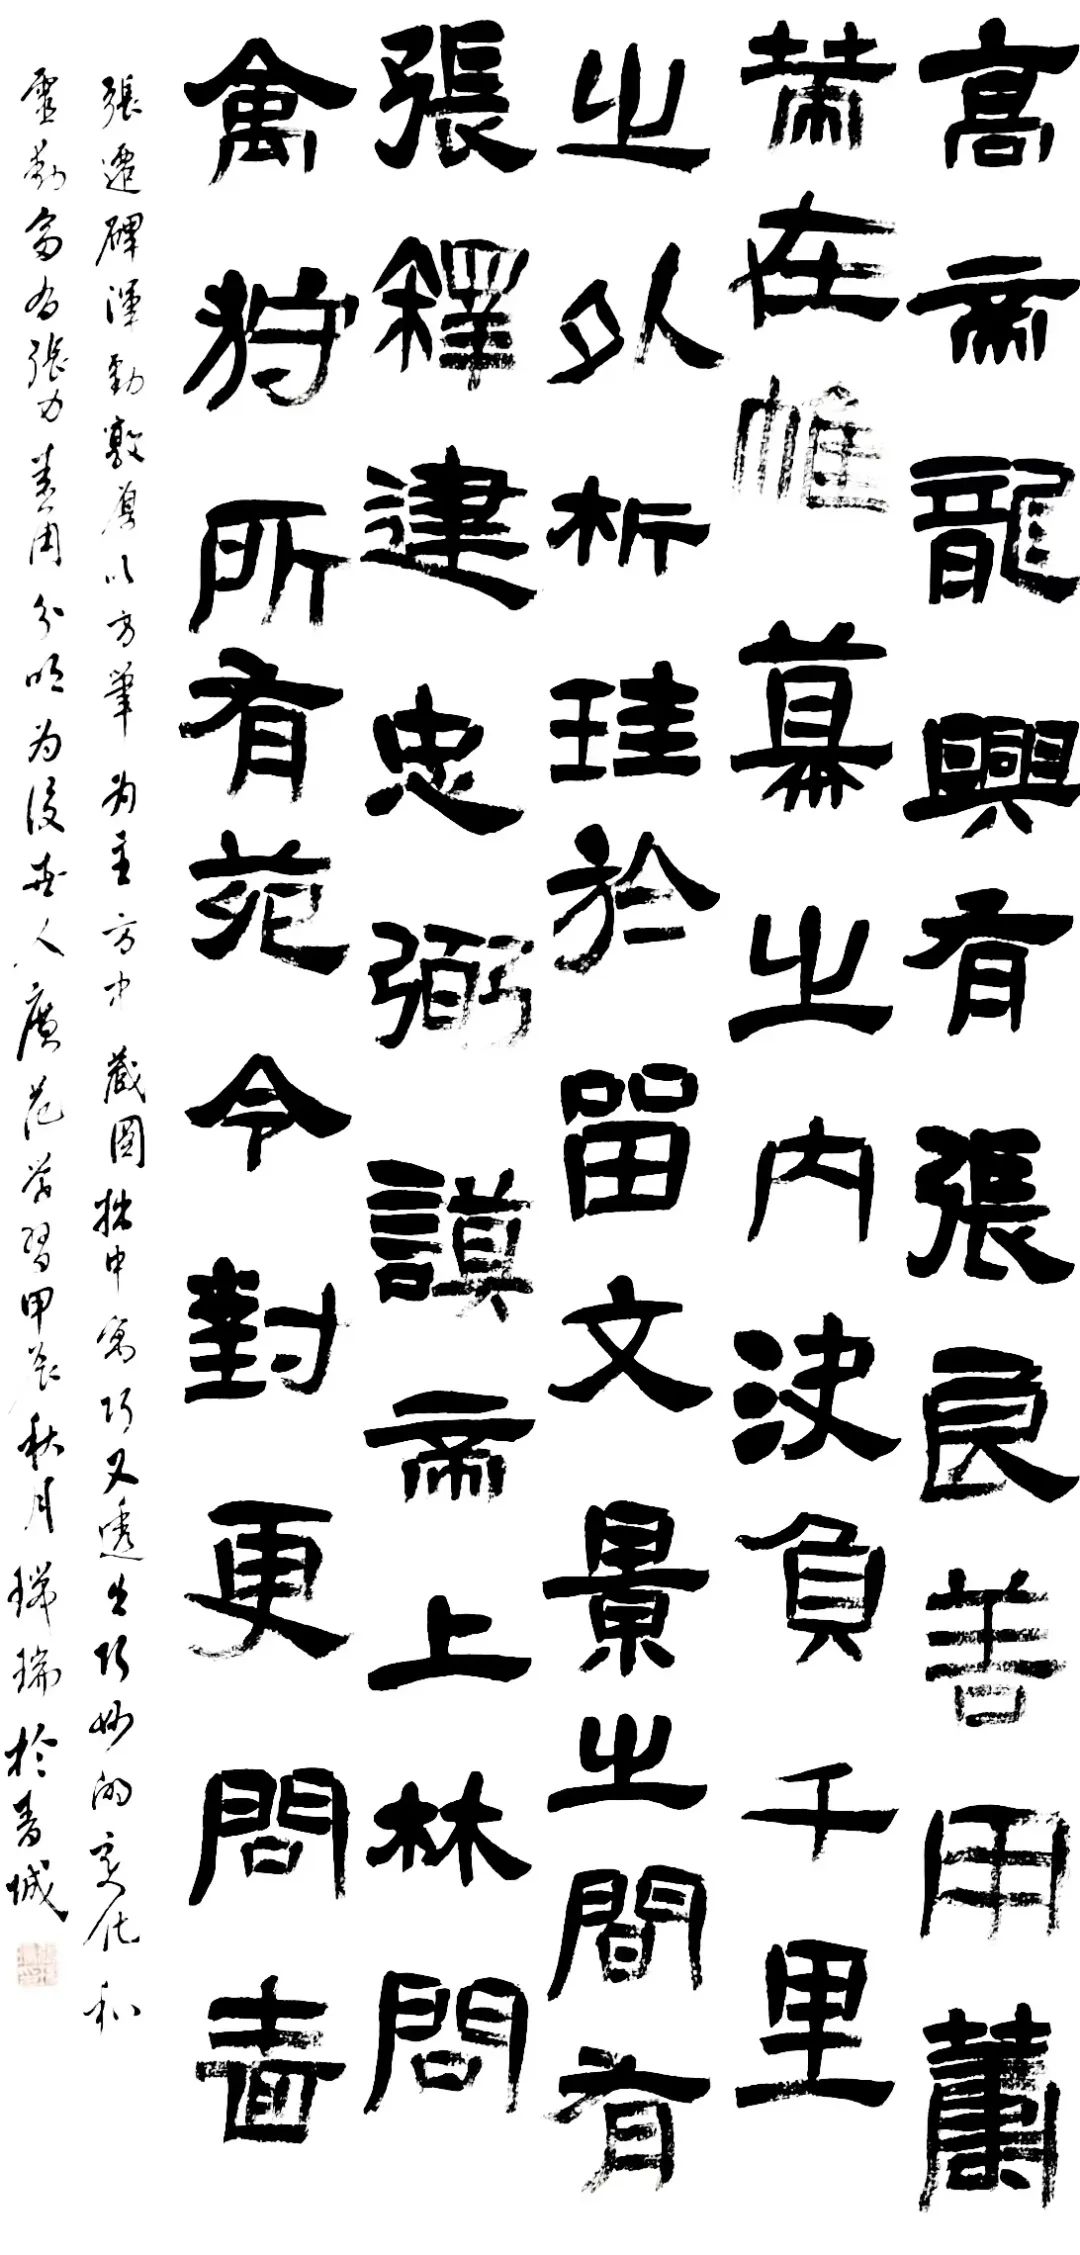 高帝龍興有張良善用籌
策在帷幕之內決負千里
之外析珪於留文景之間有
張釋建忠弼謨帝上林問
禽狩所有苑令對更問嗇
張遷碑渾勁敦厚以方筆为主方中藏圆拙中寓巧又透出巧妙的变化和
靈動富有張力用分明为後世人廣范学習甲辰秋月瑞於青城